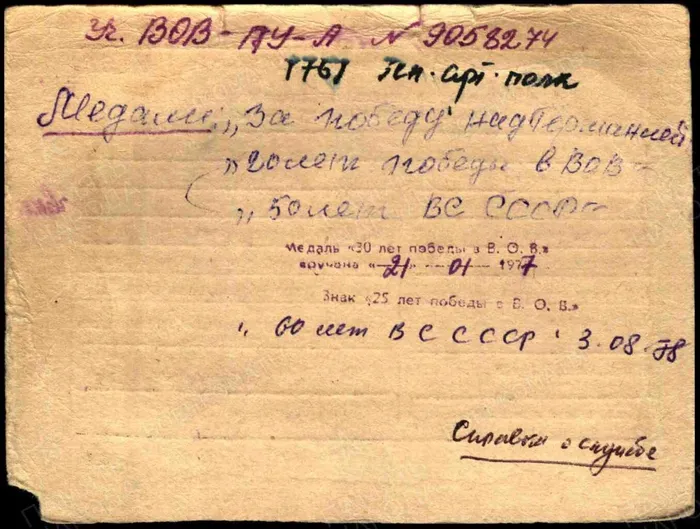 Уч. ВОВ - ПУ-А № 9058274
1761 арт. полк
Медали: „За победу над Германией
„20 лет победы в ВОВ"
„50 лет ВС СССР"
Медаль «30 лет победы в В. О. В.»
вручена «21» 01 1977
Знак «25 лет победы в В. О. В.»
„60 лет ВС СССР" 3.08.78
Справка о службе